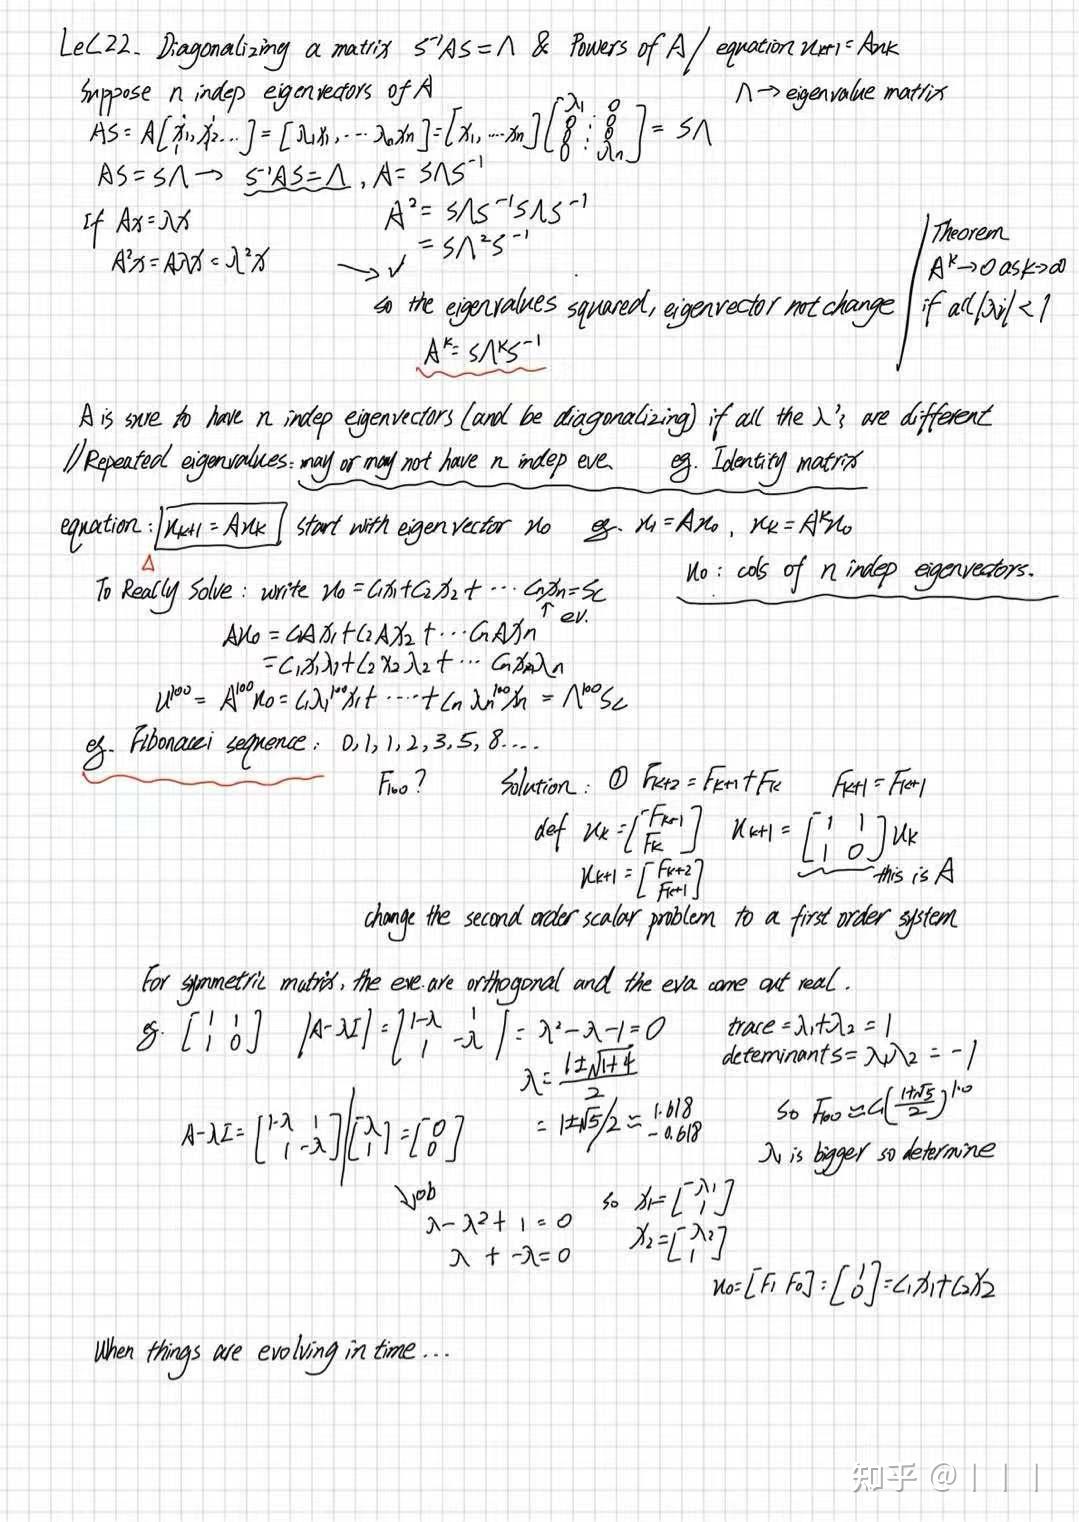 Lec22. Diagonalizing a matrix S⁻¹AS = Λ & Powers of A / equation u_{k+1} = Au_k
Suppose n indep eigenvectors of A
Λ → eigenvalue matrix
AS = A[x₁, x₂ ...] = [λ₁x₁, ... λₙxₙ] = [x₁, ... xₙ] [λ₁ 0 0 0 ⋮ 0 0 0 λₙ] = SΛ
AS = SΛ → S⁻¹AS = Λ, A = SΛS⁻¹
If Ax = λx
A² = SΛS⁻¹SΛS⁻¹
A²x = Aλx = λ²x
= SΛ²S⁻¹
→ ✓
so the eigenvalues squared, eigenvector not change
Aᵏ = SΛᵏS⁻¹
Theorem
Aᵏ → 0 as k → ∞
if all |λi| < 1
A is sure to have n indep eigenvectors (and be diagonalizing) if all the λ's are different
// Repeated eigenvalues: may or may not have n indep eve. eg. Identity matrix
equation: u_{k+1} = Au_k start with eigenvector u₀ eg. u₁ = Au₀, u_k = Aᵏu₀
Δ
u₀: cols of n indep eigenvectors.
To Really Solve: write u₀ = c₁x₁ + c₂x₂ + ... cₙxₙ = Sc
↑ ev.
Au₀ = c₁Ax₁ + c₂Ax₂ + ... cₙAxₙ
= c₁x₁λ₁ + c₂x₂λ₂ + ... cₙxₙλₙ
U¹⁰⁰ = A¹⁰⁰u₀ = c₁λ₁¹⁰⁰x₁ + ..... + cₙλₙ¹⁰⁰xₙ = Λ¹⁰⁰Sc
eg. Fibonacci sequence: 0, 1, 1, 2, 3, 5, 8....
F₁₀₀? Solution: ① F_{k+2} = F_{k+1} + F_k F_{k+1} = F_{k+1}
def u_k = [F_{k+1} F_k] u_{k+1} = [1 1 1 0] u_k
u_{k+1} = [F_{k+2} F_{k+1}] this is A
change the second order scalar problem to a first order system
For symmetric matrix, the eve. are orthogonal and the eva come out real.
eg. [1 1 1 0] |A-λI| = |1-λ 1 1 -λ| = λ² - λ - 1 = 0
λ = 1±√1+4 / 2
= 1±√5/2 ≈ 1.618 -0.618
trace = λ₁+λ₂ = 1
determinants = λ₁λ₂ = -1
so F₁₀₀ ≈ c₁(1+√5 / 2)¹⁰⁰
λ₁ is bigger so determine
A-λI = [1-λ 1 1 -λ] [λ 1] = [0 0]
λ - λ² + 1 = 0
λ + -λ = 0
so x₁ = [λ₁ 1]
x₂ = [λ₂ 1]
u₀ = [F₁ F₀] = [1 0] = c₁x₁ + c₂x₂
When things are evolving in time...
知乎 @丨丨丨